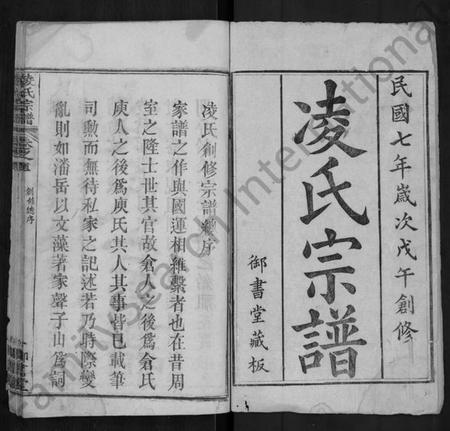 民國七年歲次戊午創修
凌氏宗譜
御書堂藏板
凌氏創修宗譜總序
家譜之作與國運相維繫者也在昔周
室之隆士世其官故倉人之後爲倉氏
庾人之後爲庾氏其人其事皆已載筆
司勲而無待私家之記述若乃時際變
亂則如潘岳以文藻著家聲子山爲詞
凌氏宗譜
創修總序
FamilySearch International